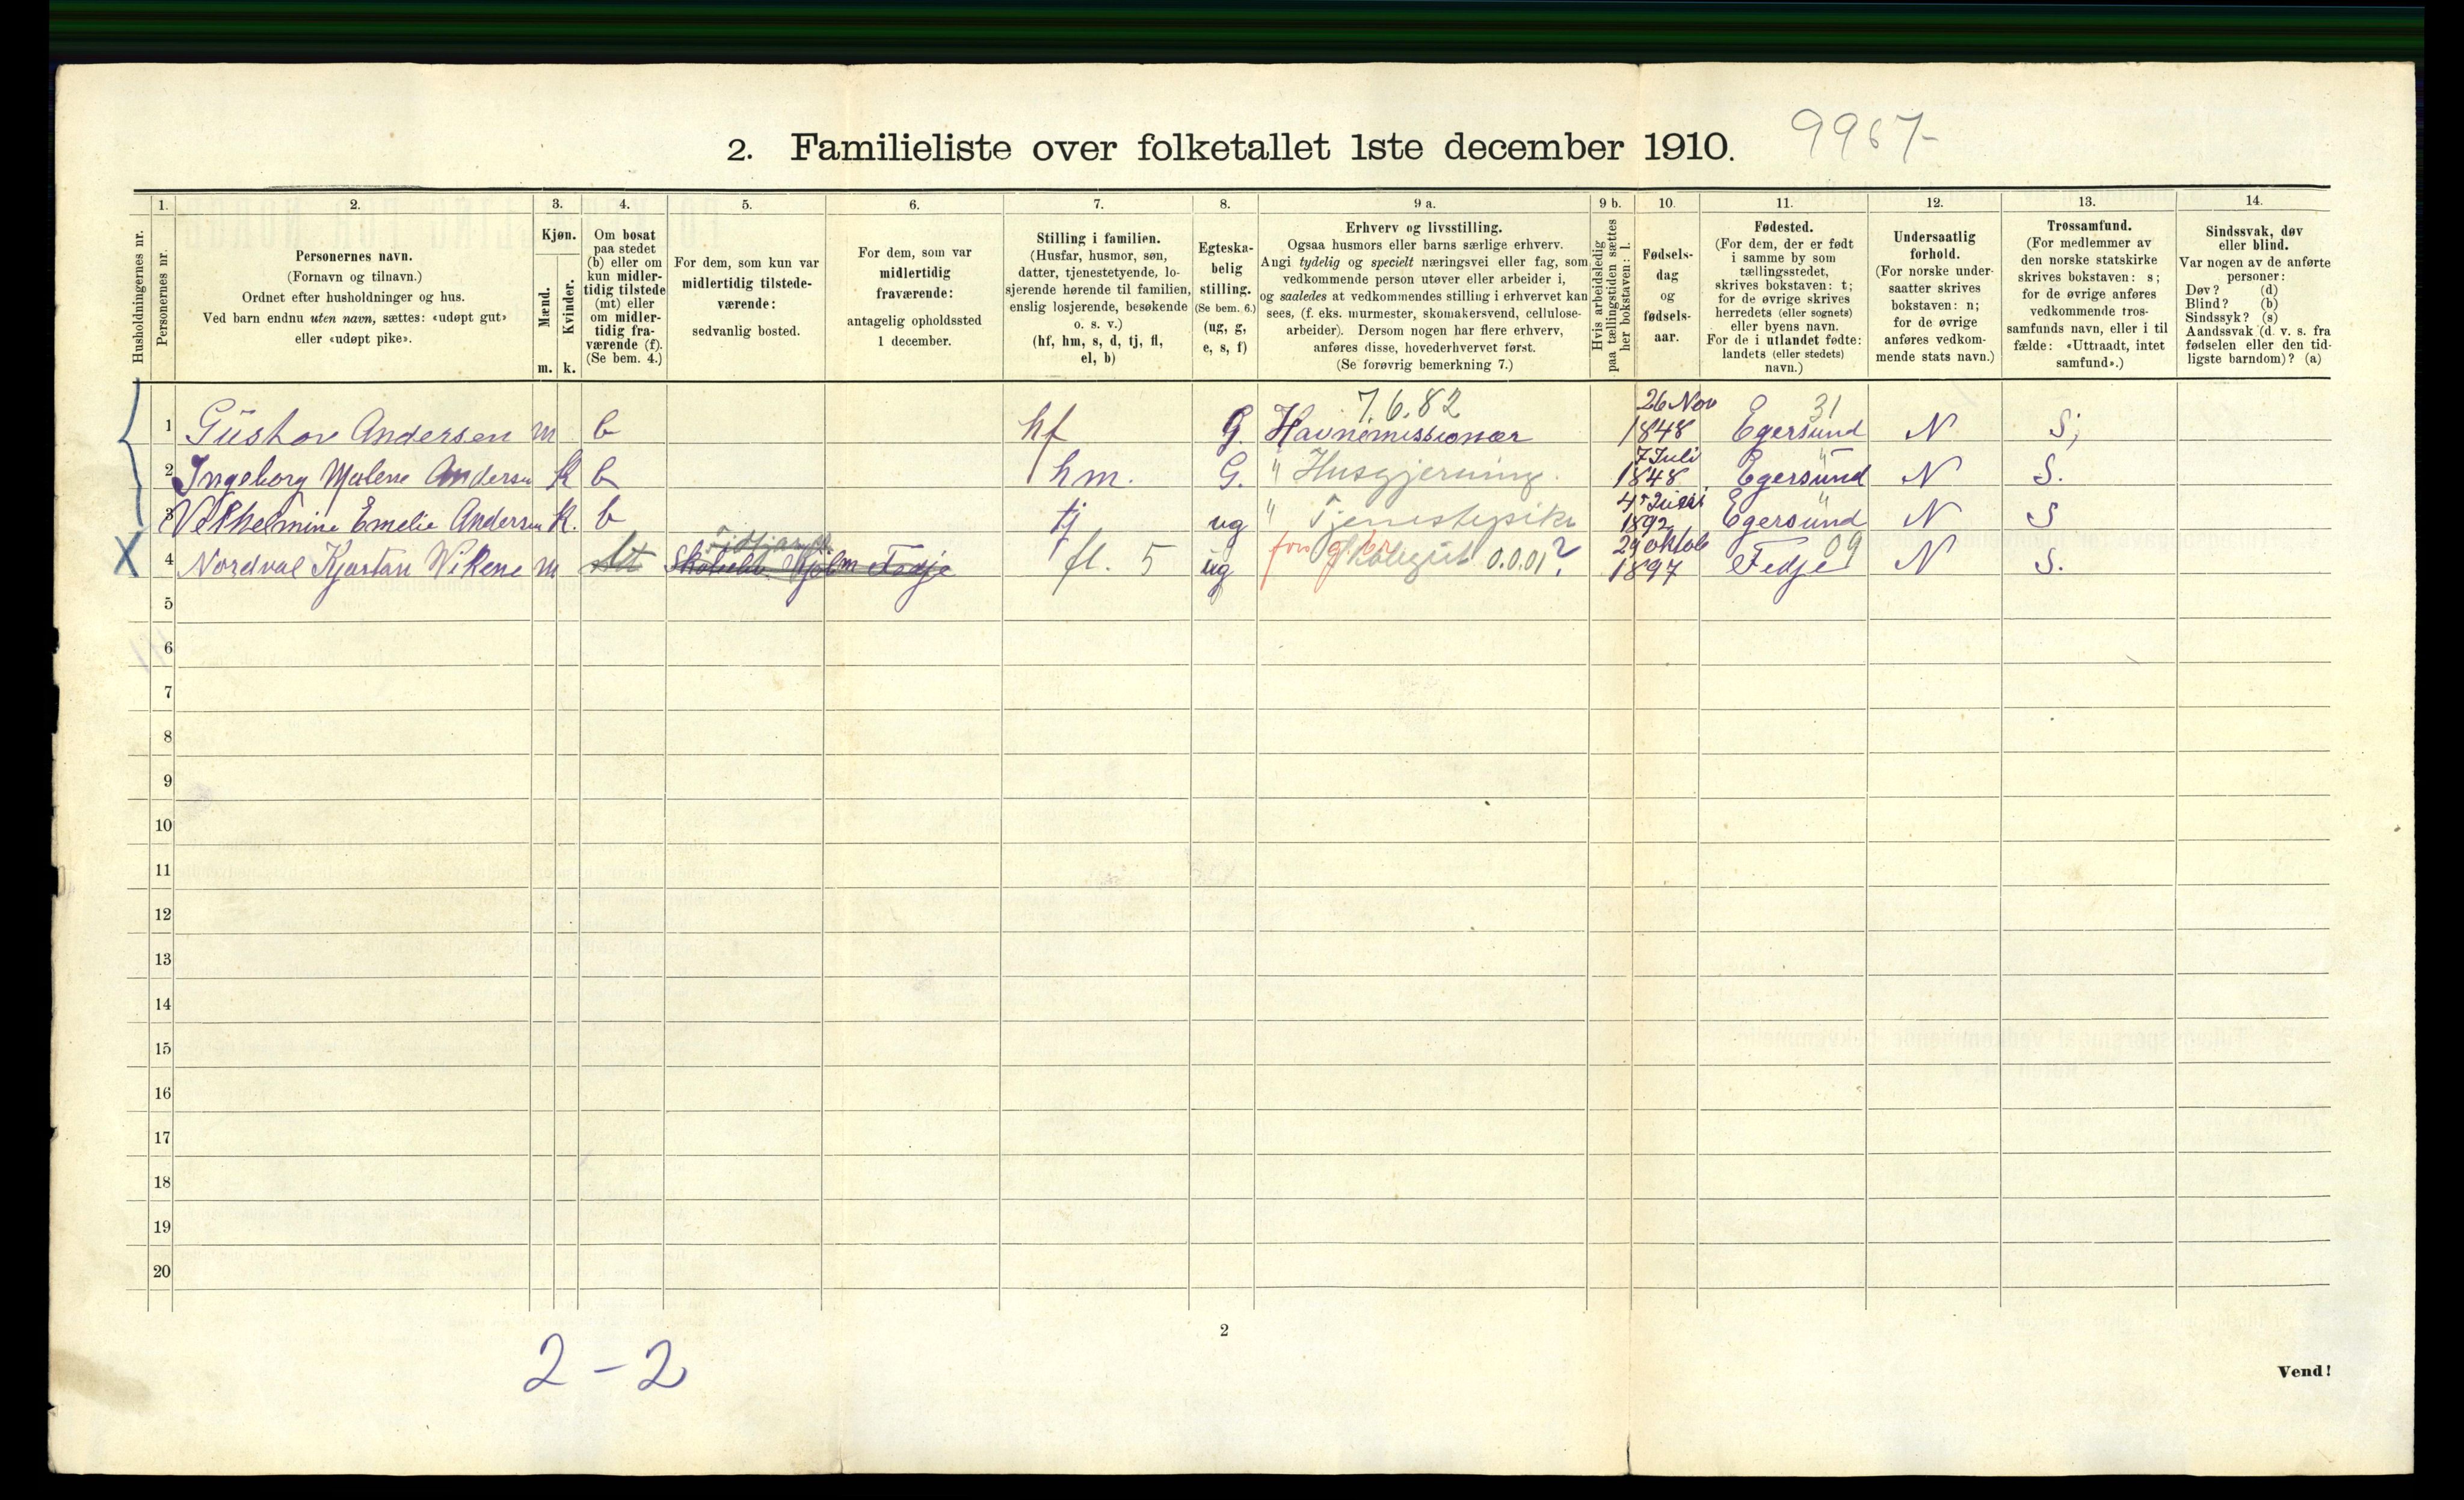 9967-
2. Familieliste over folketallet 1ste december 1910.
1. 2. 3. 4. 5. 6. 7. 8. 9 a. 9 b. 10. 11. 12. 13. 14.
Husholdningernes nr.
Personernes nr.
Personernes navn.
(Fornavn og tilnavn.)
Ordnet efter husholdninger og hus.
Ved barn endnu uten navn, sættes: «udøpt gut»
eller «udøpt pike».
Kjøn.
Mænd.
Kvinder.
m. k.
Om bosat
paa stedet
(b) eller om
kun midler-
tidig tilstede
(mt) eller
om midler-
tidig fra-
værende (f).
(Se bem. 4.)
For dem, som kun var
midlertidig tilstede-
værende:
sedvanlig bosted.
For dem, som var
midlertidig
fraværende:
antagelig opholdssted
1 december.
Stilling i familien.
(Husfar, husmor, søn,
datter, tjenestetyende, lo-
sjerende hørende til familien,
enslig losjerende, besøkende
o. s. v.)
(hf, hm, s, d, tj, fl,
el, b)
Egteska-
belig
stilling.
(Se bem. 6.)
(ug, g,
e, s, f)
Erhverv og livsstilling.
Ogsaa husmors eller barns særlige erhverv.
Angi tydelig og specielt næringsvei eller fag, som
vedkommende person utøver eller arbeider i,
og saaledes at vedkommendes stilling i erhvervet kan
sees, (f. eks. murmester, skomakersvend, cellulose-
arbeider). Dersom nogen har flere erhverv,
anføres disse, hovederhvervet først.
(Se forøvrig bemerkning 7.)
Hvis arbeidsledig
paa tællingstiden sættes
her bokstaven: l.
Fødsels-
dag
og
fødsels-
aar.
Fødested.
(For dem, der er født
i samme by som
tællingsstedet,
skrives bokstaven: t;
for de øvrige skrives
herredets (eller sognets)
eller byens navn.
For de i utlandet fødte:
landets (eller stedets)
navn.)
Undersaatlig
forhold.
(For norske under-
saatter skrives
bokstaven: n;
for de øvrige
anføres vedkom-
mende stats navn.)
Trossamfund.
(For medlemmer av
den norske statskirke
skrives bokstaven: s;
for de øvrige anføres
vedkommende tros-
samfunds navn, eller i til
fælde: «Uttraadt, intet
samfund».)
Sindssvak, døv
eller blind.
Var nogen av de anførte
personer:
Døv? (d)
Blind? (b)
Sindssyk? (s)
Aandssvak (d. v. s. fra
fødselen eller den tid-
ligste barndom)? (a)
7.6.82 26 Nov 31
1 Gustav Andersen m b hf G. Havnemissionær 1848 Egersund N S;
7 Juli "
2 Ingeborg Malene Andersen K b hm. G. " Husgjerning. 1848 Egersund N S.
"
3 Vilhelmine Emelie Andersen K. b tj ug " Tjenestepike 1892 Egersund N S
29 oktob 09
X 4 Nordval Kjartan Vikene m Fedje fl. 5 ug Skolegut 0.0.01? 1897 Fedje N S.
5
6
7
8
9
10
11
12
13
14
15
16
17
18
19
20
2
2 - 2
Vend!